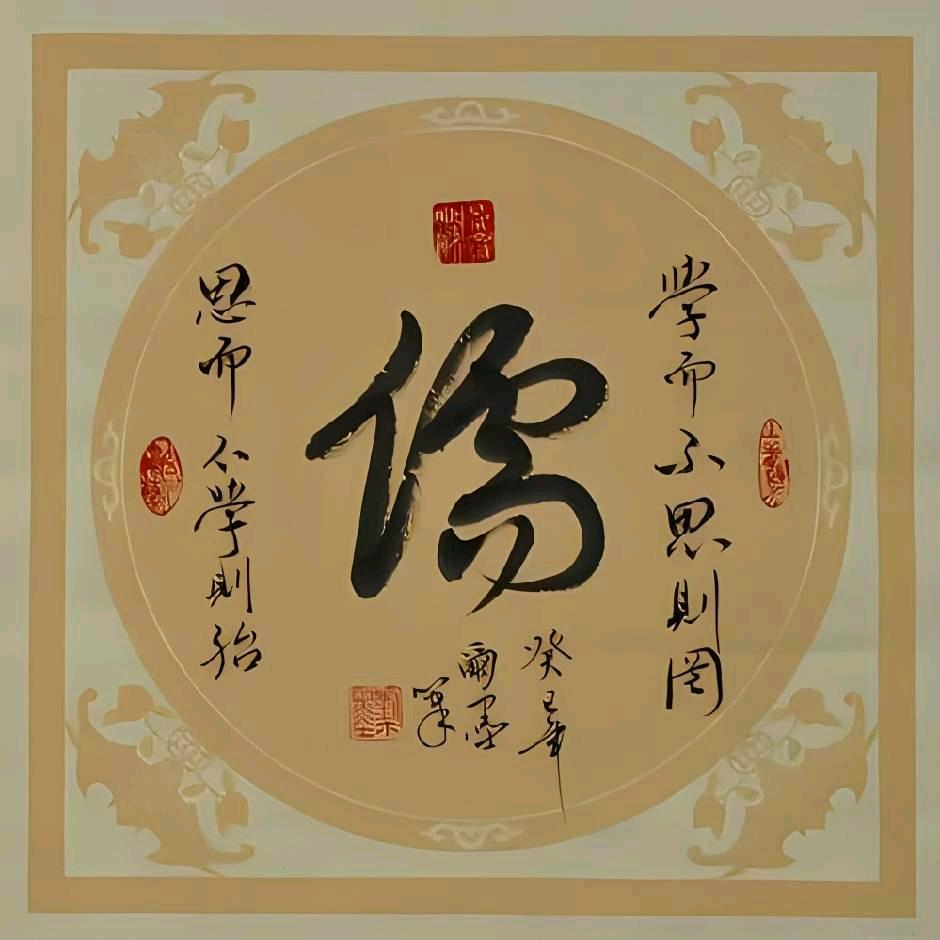 學而不思則罔
儒
思而不學則殆
癸巳年
爾墨
筆